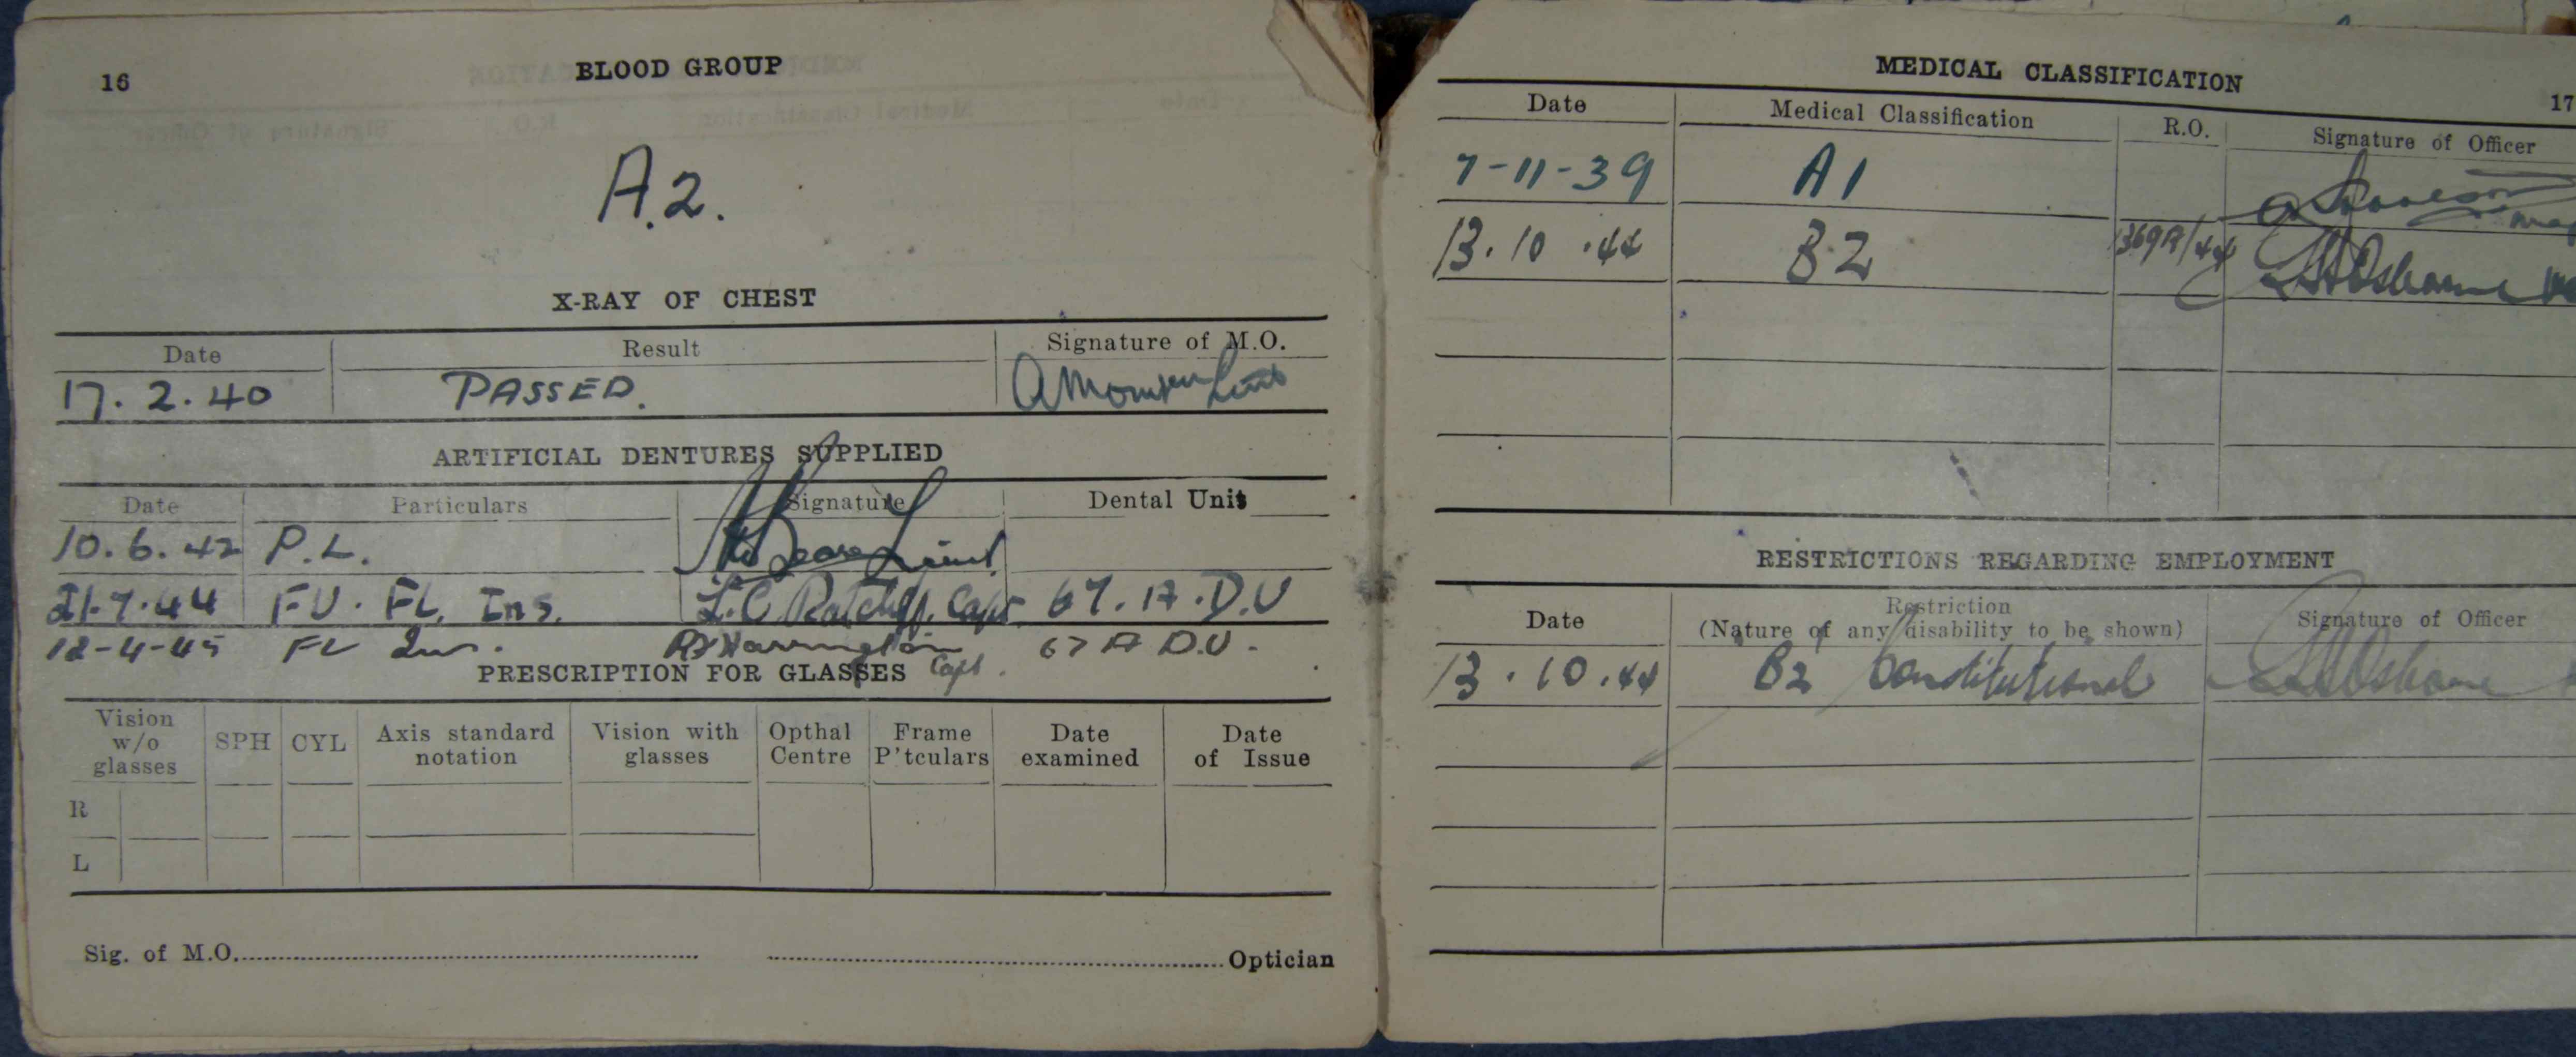 16
BLOOD GROUP
A.2.
X-RAY OF CHEST
Date Result Signature of M.O.
17.2.40 PASSED. Lieut
ARTIFICIAL DENTURES SUPPLIED
Date Particulars Signature Dental Unit
10.6.42 P.L. Lieut
21.7.44 FU. FL. Ins. L.C. Ratcliff. Capt. 67.A.D.U
12-4-45 FL Ins. Harrington 67 A D.U.
PRESCRIPTION FOR GLASSES Capt.
Vision w/o glasses SPH CYL Axis standard notation Vision with glasses Opthal Centre Frame P'tculars Date examined Date of Issue
R
L
Sig. of M.O. Optician
MEDICAL CLASSIFICATION
17
Date Medical Classification R.O. Signature of Officer
7-11-39 A1
13.10.44 B2 1369A/44 Osborne
RESTRICTIONS REGARDING EMPLOYMENT
Date Restriction (Nature of any disability to be shown) Signature of Officer
13.10.44 B2 Constitutional Osborne